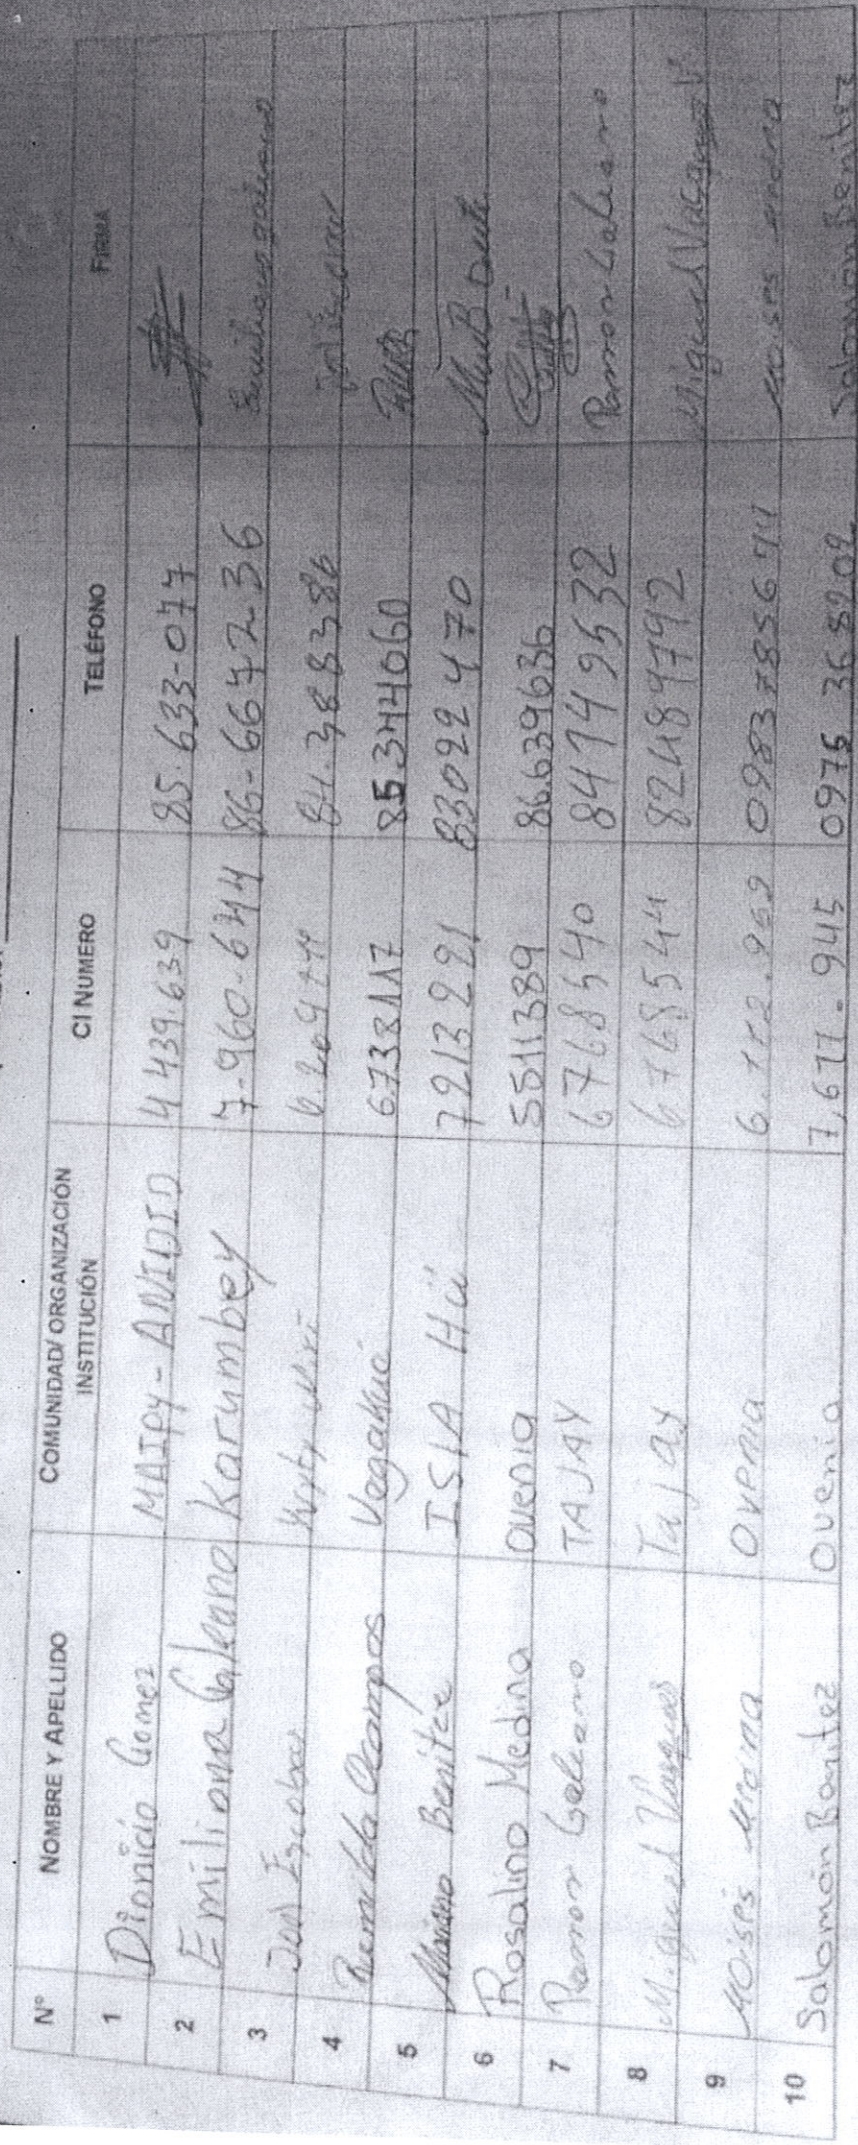 N° NOMBRE Y APELLIDO COMUNIDAD/ ORGANIZACIÓN INSTITUCIÓN CI NUMERO TELÉFONO FIRMA
1 Dionicio Gomez MAIPY - ANIDID 4439.639 85.633-077
2 Emiliana Galeano Karumbey 7-960-644 86-667236 Emiliana galeano
3 José Escobar 84.388386
4 Ocampos Vegakue 6738117 85.344060
5 Mariano Benítez ISLA Hú 7213291 83022470
6 Rosalino Medina Ovenia 5511389 86.639636
7 Ramon Galeano TAJAY 6768540 84149532 Ramon Galeano
8 Miguel Vasquez Tajay 6768544 82489792 Miguel
9 Moises Ovenia 0983785674 Moises
10 Salomón Benitez Ovenia 7,677-945 0975 368202 Salomón Benitez